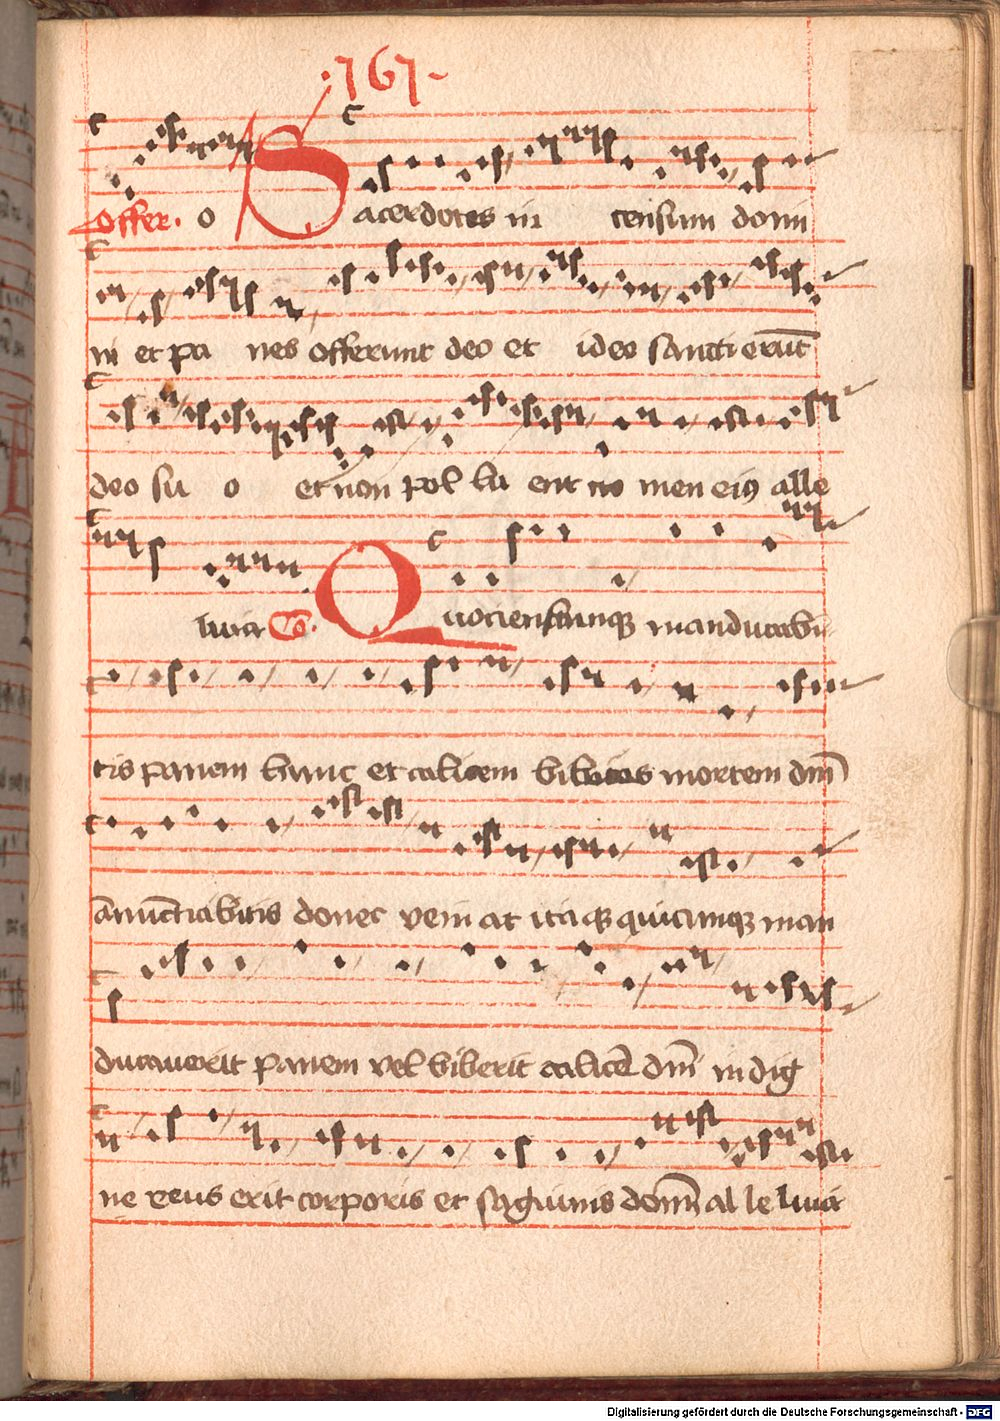 .167.
Offer. o Sacerdotes in censum domi
ni et pa nes offerunt deo et ideo sancti erūt
deo su o et non pol lu ent no men eiꝰ alle
luia Co. Quocienscumqꝫ manducabi-
tis panem hunc et calicem bibetis mortem dm̄
ānūctiabitis donec veni at itaqꝫ quicumqꝫ man
ducauerit panem vel biberit calicē dm̄ indig
ne reus erit corporis et sāguinis dom̄ al le luia
Digitalisierung gefördert durch die Deutsche Forschungsgemeinschaft - DFG